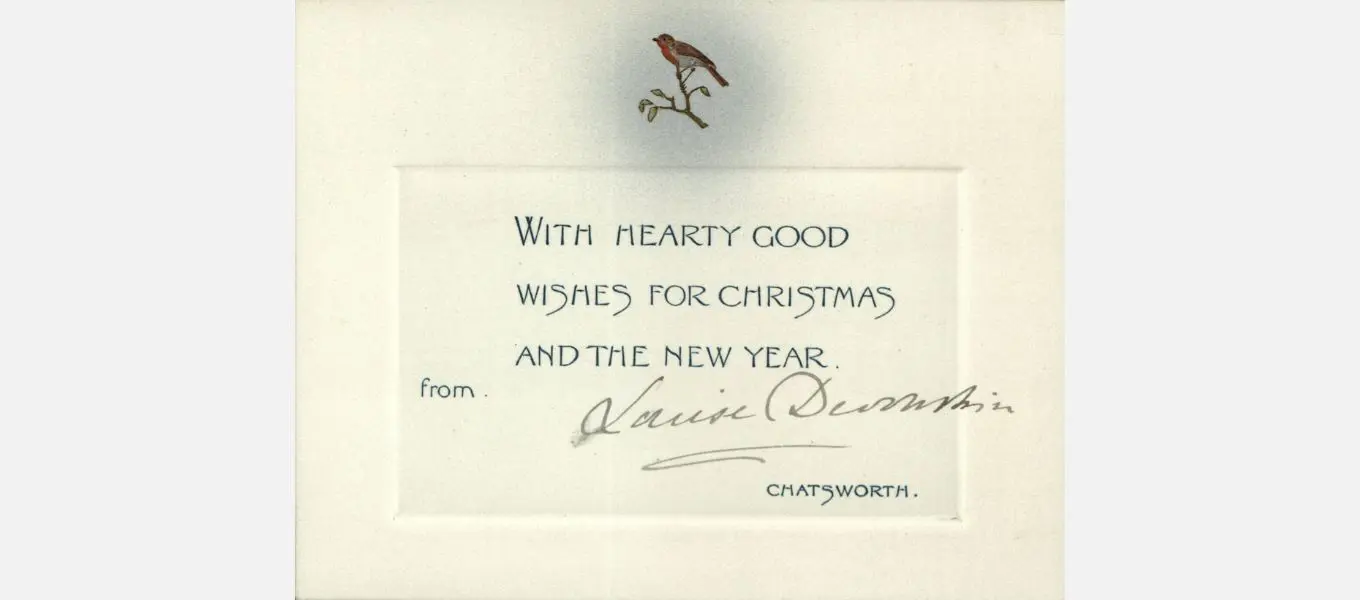 WITH HEARTY GOOD
WISHES FOR CHRISTMAS
AND THE NEW YEAR.
from.
Louise Devonshire
CHATSWORTH.